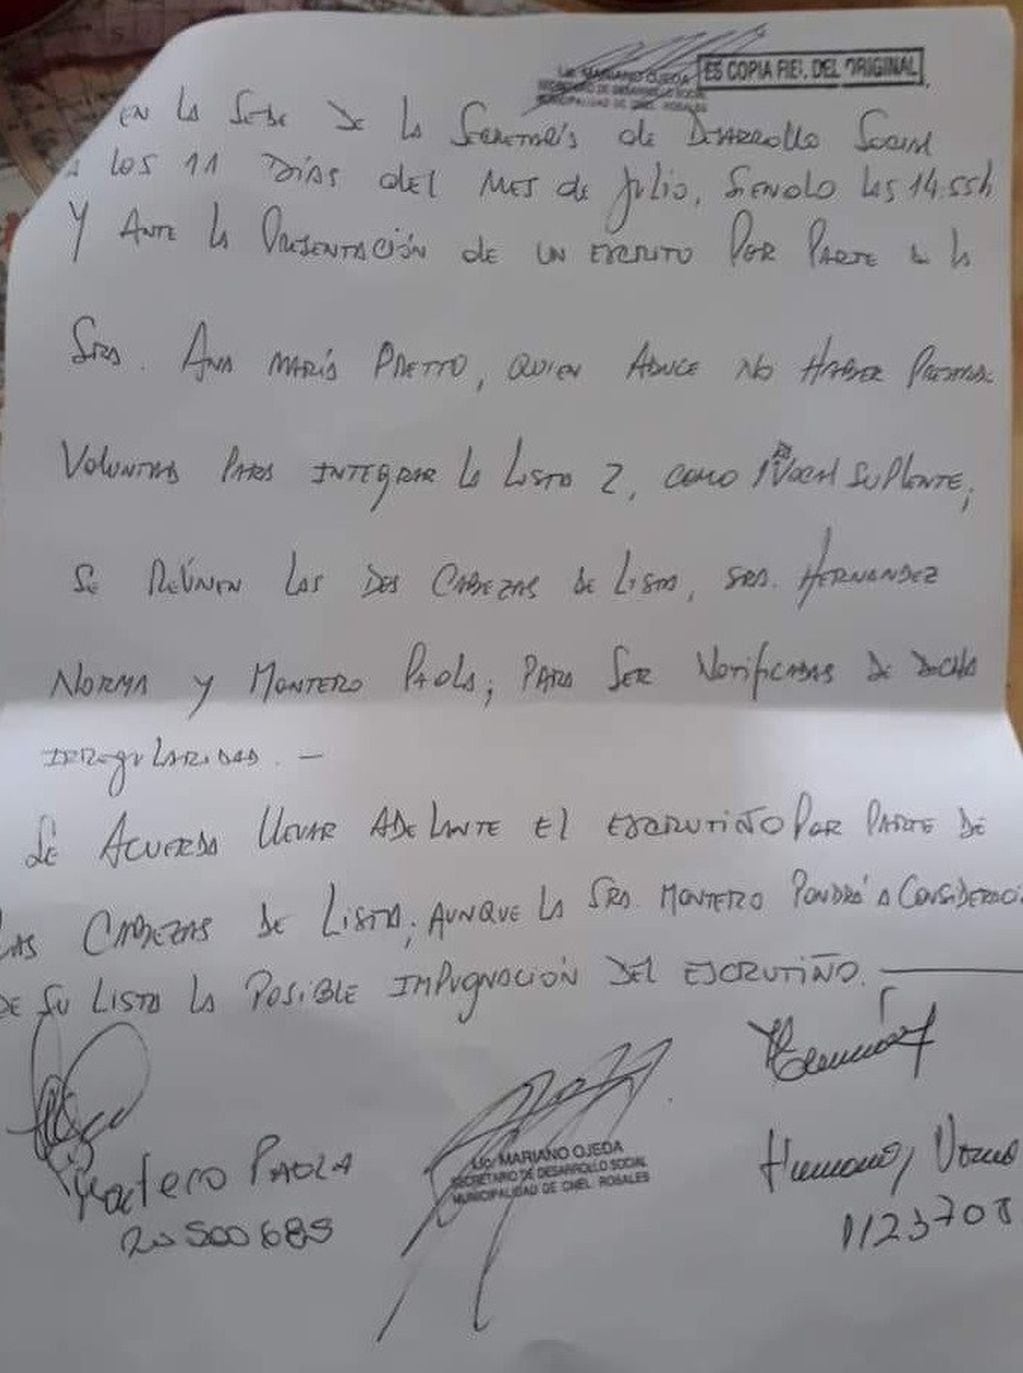 Lic. MARIANO OJEDA
SECRETARIO DE DESARROLLO SOCIAL
MUNICIPALIDAD DE CNEL. ROSALES
ES COPIA FIEL DEL ORIGINAL
EN LA SEDE DE LA SECRETARÍA de DESARROLLO SOCIAL
A LOS 11 DÍAS del MES de Julio, SIENDO LAS 14.55h
Y ANTE LA PRESENTACIÓN de UN ESCRITO POR PARTE de LA
SRA. ANA MARÍA PRETTO, QUIEN ADUCE NO HABER PRESTADO
VOLUNTAD PARA INTEGRAR LA LISTA 2, COMO VOCAL SUPLENTE,
SE REÚNEN LAS DOS CABEZAS DE LISTA, SRA. HERNANDEZ
NORMA Y MONTERO PAOLA; PARA SER NOTIFICADAS DE DICHA
IRREGULARIDAD. —
SE ACUERDA LLEVAR ADELANTE El ESCRUTIÑO POR PARTE DE
LAS CABEZAS DE LISTA; AUNQUE LA SRA. MONTERO PONDRÁ A CONSIDERACI
DE SU LISTA LA POSIBLE IMPUGNACIÓN DEL ESCRUTIÑO. —
Montero PAOLA
20500685
Lic. MARIANO OJEDA
SECRETARIO DE DESARROLLO SOCIAL
MUNICIPALIDAD DE CNEL. ROSALES
11123708